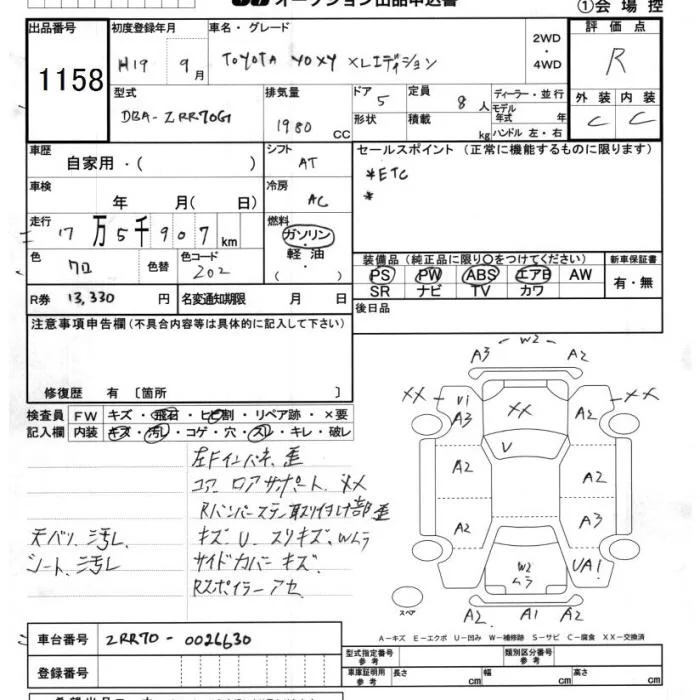 オークション出品申込書
①会場控
出品番号 初度登録年月 車名・グレード 評価点
1158 H19 9月 TOYOTA VOXY XLエディション 2WD・4WD R
型式 排気量 ドア 5 定員 8人 ディーラー・並行 外装 内装
DBA-ZRR70G 1980 CC 形状 積載 kg モデル年式 年 C C
ハンドル 左・右
車歴 自家用・( ) シフト AT セールスポイント (正常に機能するものに限ります)
車検 年 月( 日) 冷房 AC *ETC
*
走行 17万5千907km 燃料 ガソリン・軽油・( )
色 クロ 色替 色コード 202
装備品 (純正品に限り○をつけてください) 新車保証書
PS PW ABS エアB AW 有・無
SR ナビ TV カワ
R券 13,330円 名変通知期限 月 日 後日品
注意事項申告欄(不具合内容等は具体的に記入して下さい)
修復歴 有 〔箇所 〕
検査員 FW キズ・飛石・ヒビ割・リペア跡・×要
記入欄 内装 キズ・汚レ・コゲ・穴・スレ・キレ・破レ
左Fインパネ 歪
コア ロアサポート XX
Rバンパーステー取り付け部 歪
天バリ 汚レ キズ U スリキズ Wムラ
シート 汚レ サイドカバー キズ
Rスポイラー アセ
W2
A3 A2
XX XX
U1
A3 XX A2
V
A2 A2
A2 A3
W2
ムラ UA1
スペア
A2 A1 A2
A-キズ E-エクボ U-凹み W-補修跡 S-サビ C-腐食 XX-交換済
車台番号 ZRR70-0026630
型式指定番号 参考 類別区分番号 参考
登録番号 車庫証明用 参考 長さ cm 幅 cm 高さ cm